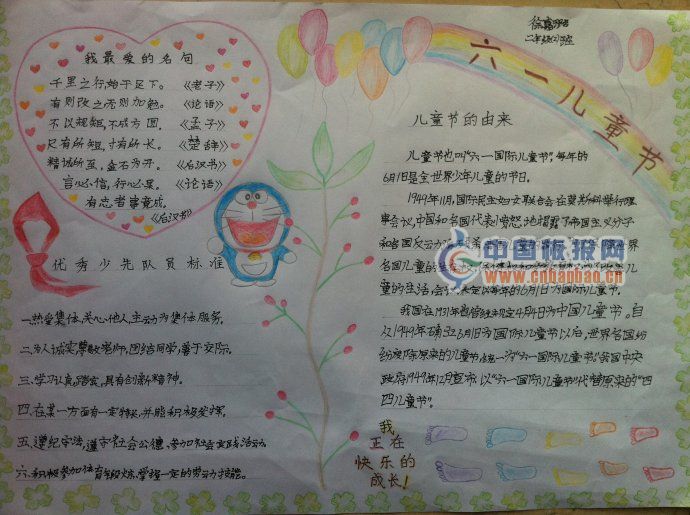 我最爱的名句
千里之行,始于足下。《老子》
有则改之无则加勉。《论语》
不以规矩,不成方圆。《孟子》
尺有所短,寸有所长。《楚辞》
精诚所至,金石为开。《后汉书》
言必信,行必果。《论语》
有志者事竟成。
《后汉书》
优秀少先队员标准
一.热爱集体,关心他人,主动为集体服务。
二.为人诚实,尊敬老师,团结同学,善于交际。
三.学习认真,踏实,具有创新精神。
四.在某一方面有一定特长,并能积极发挥。
五.遵纪守法,遵守社会公德,参加社会实践活动。
六.积极参加体育锻炼,掌握一定的劳动技能。
二年级
六一儿童节
儿童节的由来
儿童节也叫“六一国际儿童节”,每年的
6月1日是全世界少年儿童的节日。
1949年11月,国际民主妇女联合会在莫斯科举行理
事会议,中国和各国代表愤怒地揭露了帝国主义分子
和各国反动
各国儿童的生存
童的生活 会议决定以每年的6月1日为国际儿童节。
我国在1931年曾 规定4月4日为中国儿童节。自
从1949年确立6月1日为国际儿童节以后,世界各国纷
纷废除原来的儿童节统一为“六一国际儿童节”我国中央
政府1949年12月宣布:以“六一国际儿童节”代替原来的“四
四儿童节”。
中国板报网
www.cnbanbao.cn
我
正在
快乐的
成长!